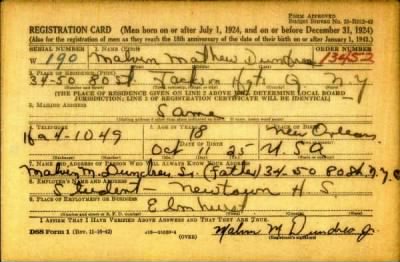 FORM APPROVED
REGISTRATION CARD (Men born on or after July 1, 1924, and on or before December 31, 1924)
(Also for the registration of men as they reach the 18th anniversary of the date of their birth on or after January 1, 1943.)
SERIAL NUMBER
1. NAME (Print)
W 190 Malvin Mathew 13452
2. PLACE OF RESIDENCE (Print)
34-50 80 St. Jackson Hgts Q N.Y.
[THE PLACE OF RESIDENCE GIVEN ON LINE 2 ABOVE WILL DETERMINE LOCAL BOARD
JURISDICTION; LINE 2 OF REGISTRATION CERTIFICATE WILL BE IDENTICAL]
3. MAILING ADDRESS
Same
4. TELEPHONE
5. AGE IN YEARS
18
New Orleans
4-1049
DATE OF BIRTH
Oct 11 25 USA
7. NAME AND ADDRESS OF PERSON WHO WILL ALWAYS KNOW YOUR ADDRESS
Malvin M. Sr. (Father) 34-50 80 St. N.Y.C
8. EMPLOYER'S NAME AND ADDRESS
Student - Newtown H.S.
9. PLACE OF EMPLOYMENT OR BUSINESS
Elmhurst
I AFFIRM THAT I HAVE VERIFIED ABOVE ANSWERS AND THAT THEY ARE TRUE.
DSS Form 1 (Rev. 11-16-42)
M. Jr.